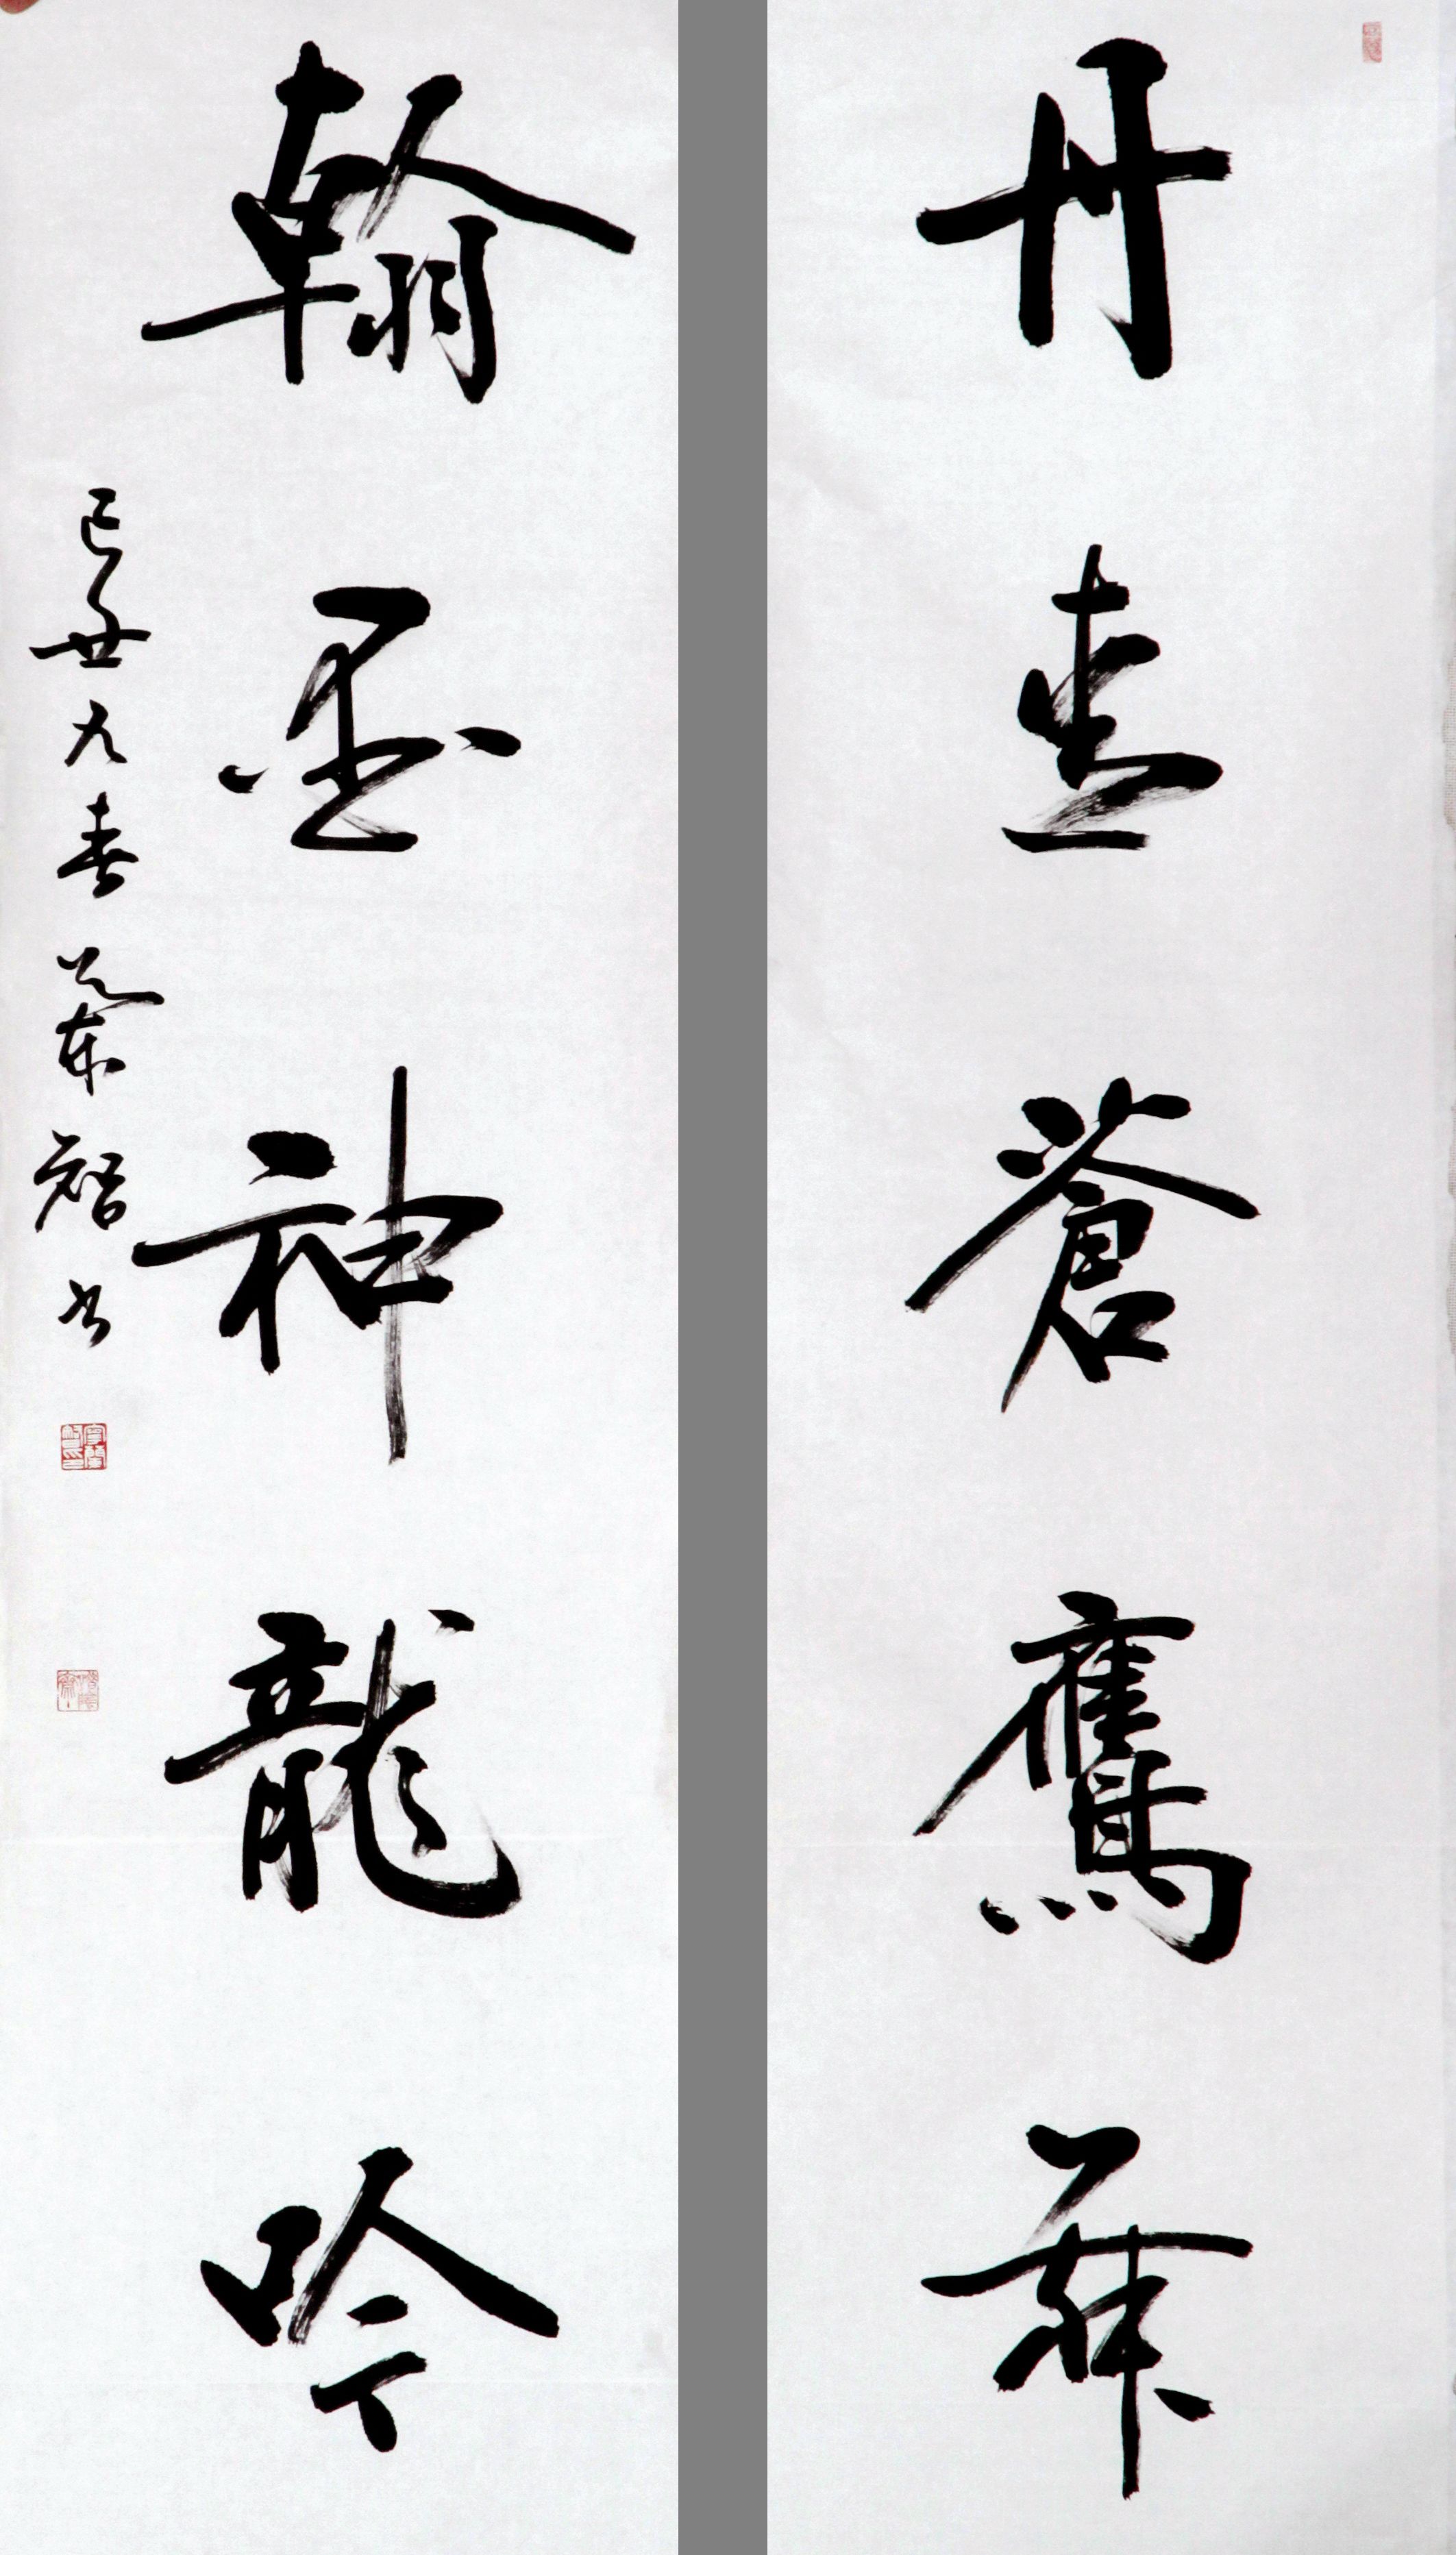 丹青蒼鷹舞
翰墨神龍吟
己丑九春 榮智书